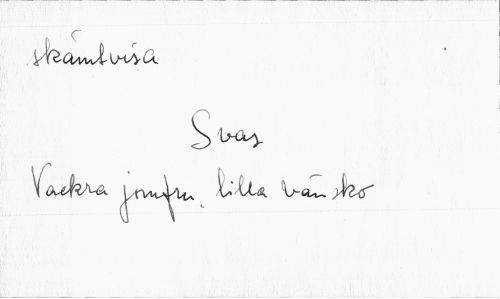 skämtvisa
Svar
Vackra jomfru, lilla vänsko